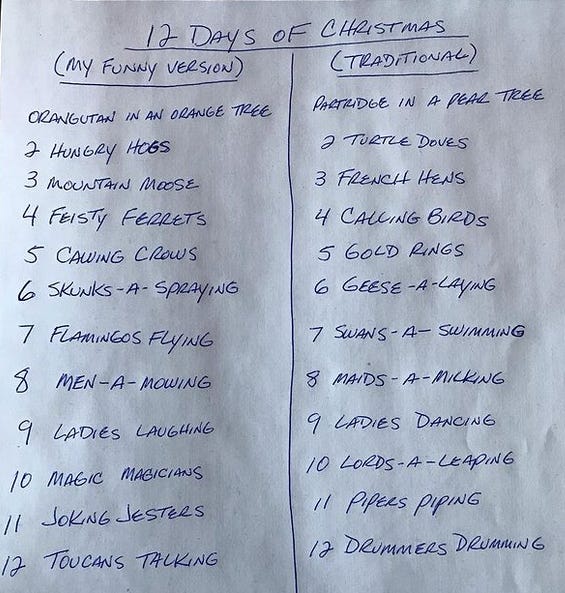 12 DAYS OF CHRISTMAS
(MY FUNNY VERSION)
ORANGUTAN IN AN ORANGE TREE
2 HUNGRY HOGS
3 MOUNTAIN MOOSE
4 FEISTY FERRETS
5 CAWING CROWS
6 SKUNKS-A-SPRAYING
7 FLAMINGOS FLYING
8 MEN-A-MOWING
9 LADIES LAUGHING
10 MAGIC MAGICIANS
11 JOKING JESTERS
12 TOUCANS TALKING
(TRADITIONAL)
PARTRIDGE IN A PEAR TREE
2 TURTLE DOVES
3 FRENCH HENS
4 CALLING BIRDS
5 GOLD RINGS
6 GEESE-A-LAYING
7 SWANS-A-SWIMMING
8 MAIDS-A-MILKING
9 LADIES DANCING
10 LORDS-A-LEAPING
11 PIPERS PIPING
12 DRUMMERS DRUMMING